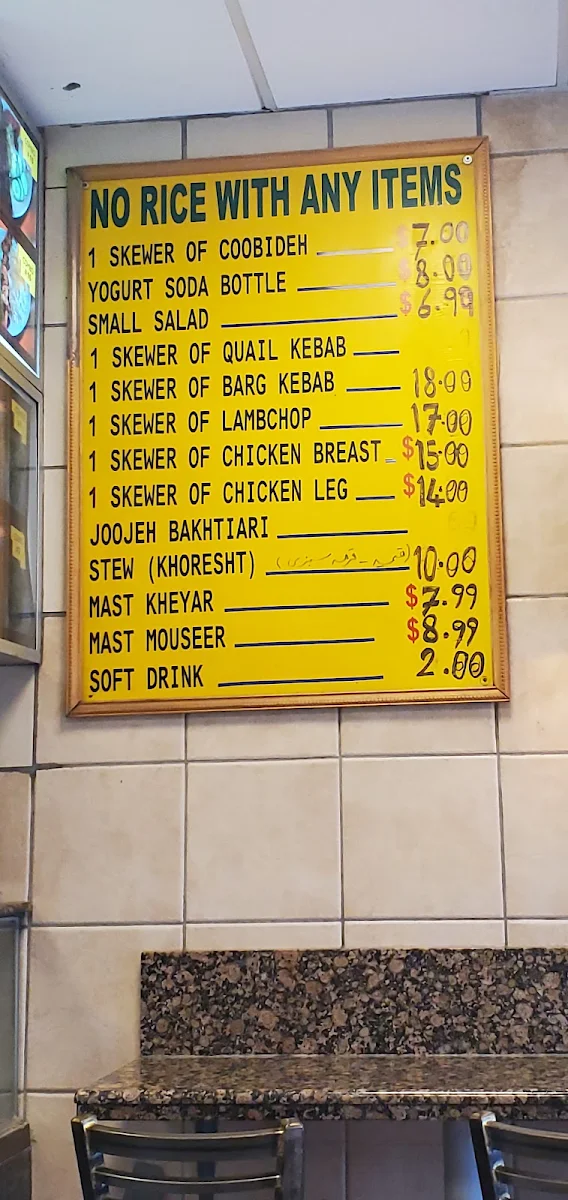 NO RICE WITH ANY ITEMS
1 SKEWER OF COOBIDEH 7.00
YOGURT SODA BOTTLE 8.00
SMALL SALAD $6.99
1 SKEWER OF QUAIL KEBAB
1 SKEWER OF BARG KEBAB 18.00
1 SKEWER OF LAMBCHOP 17.00
1 SKEWER OF CHICKEN BREAST $15.00
1 SKEWER OF CHICKEN LEG $14.00
JOOJEH BAKHTIARI
STEW (KHORESHT) (قیمه - قرمه سبزی) 10.00
MAST KHEYAR $7.99
MAST MOUSEER $8.99
SOFT DRINK 2.00